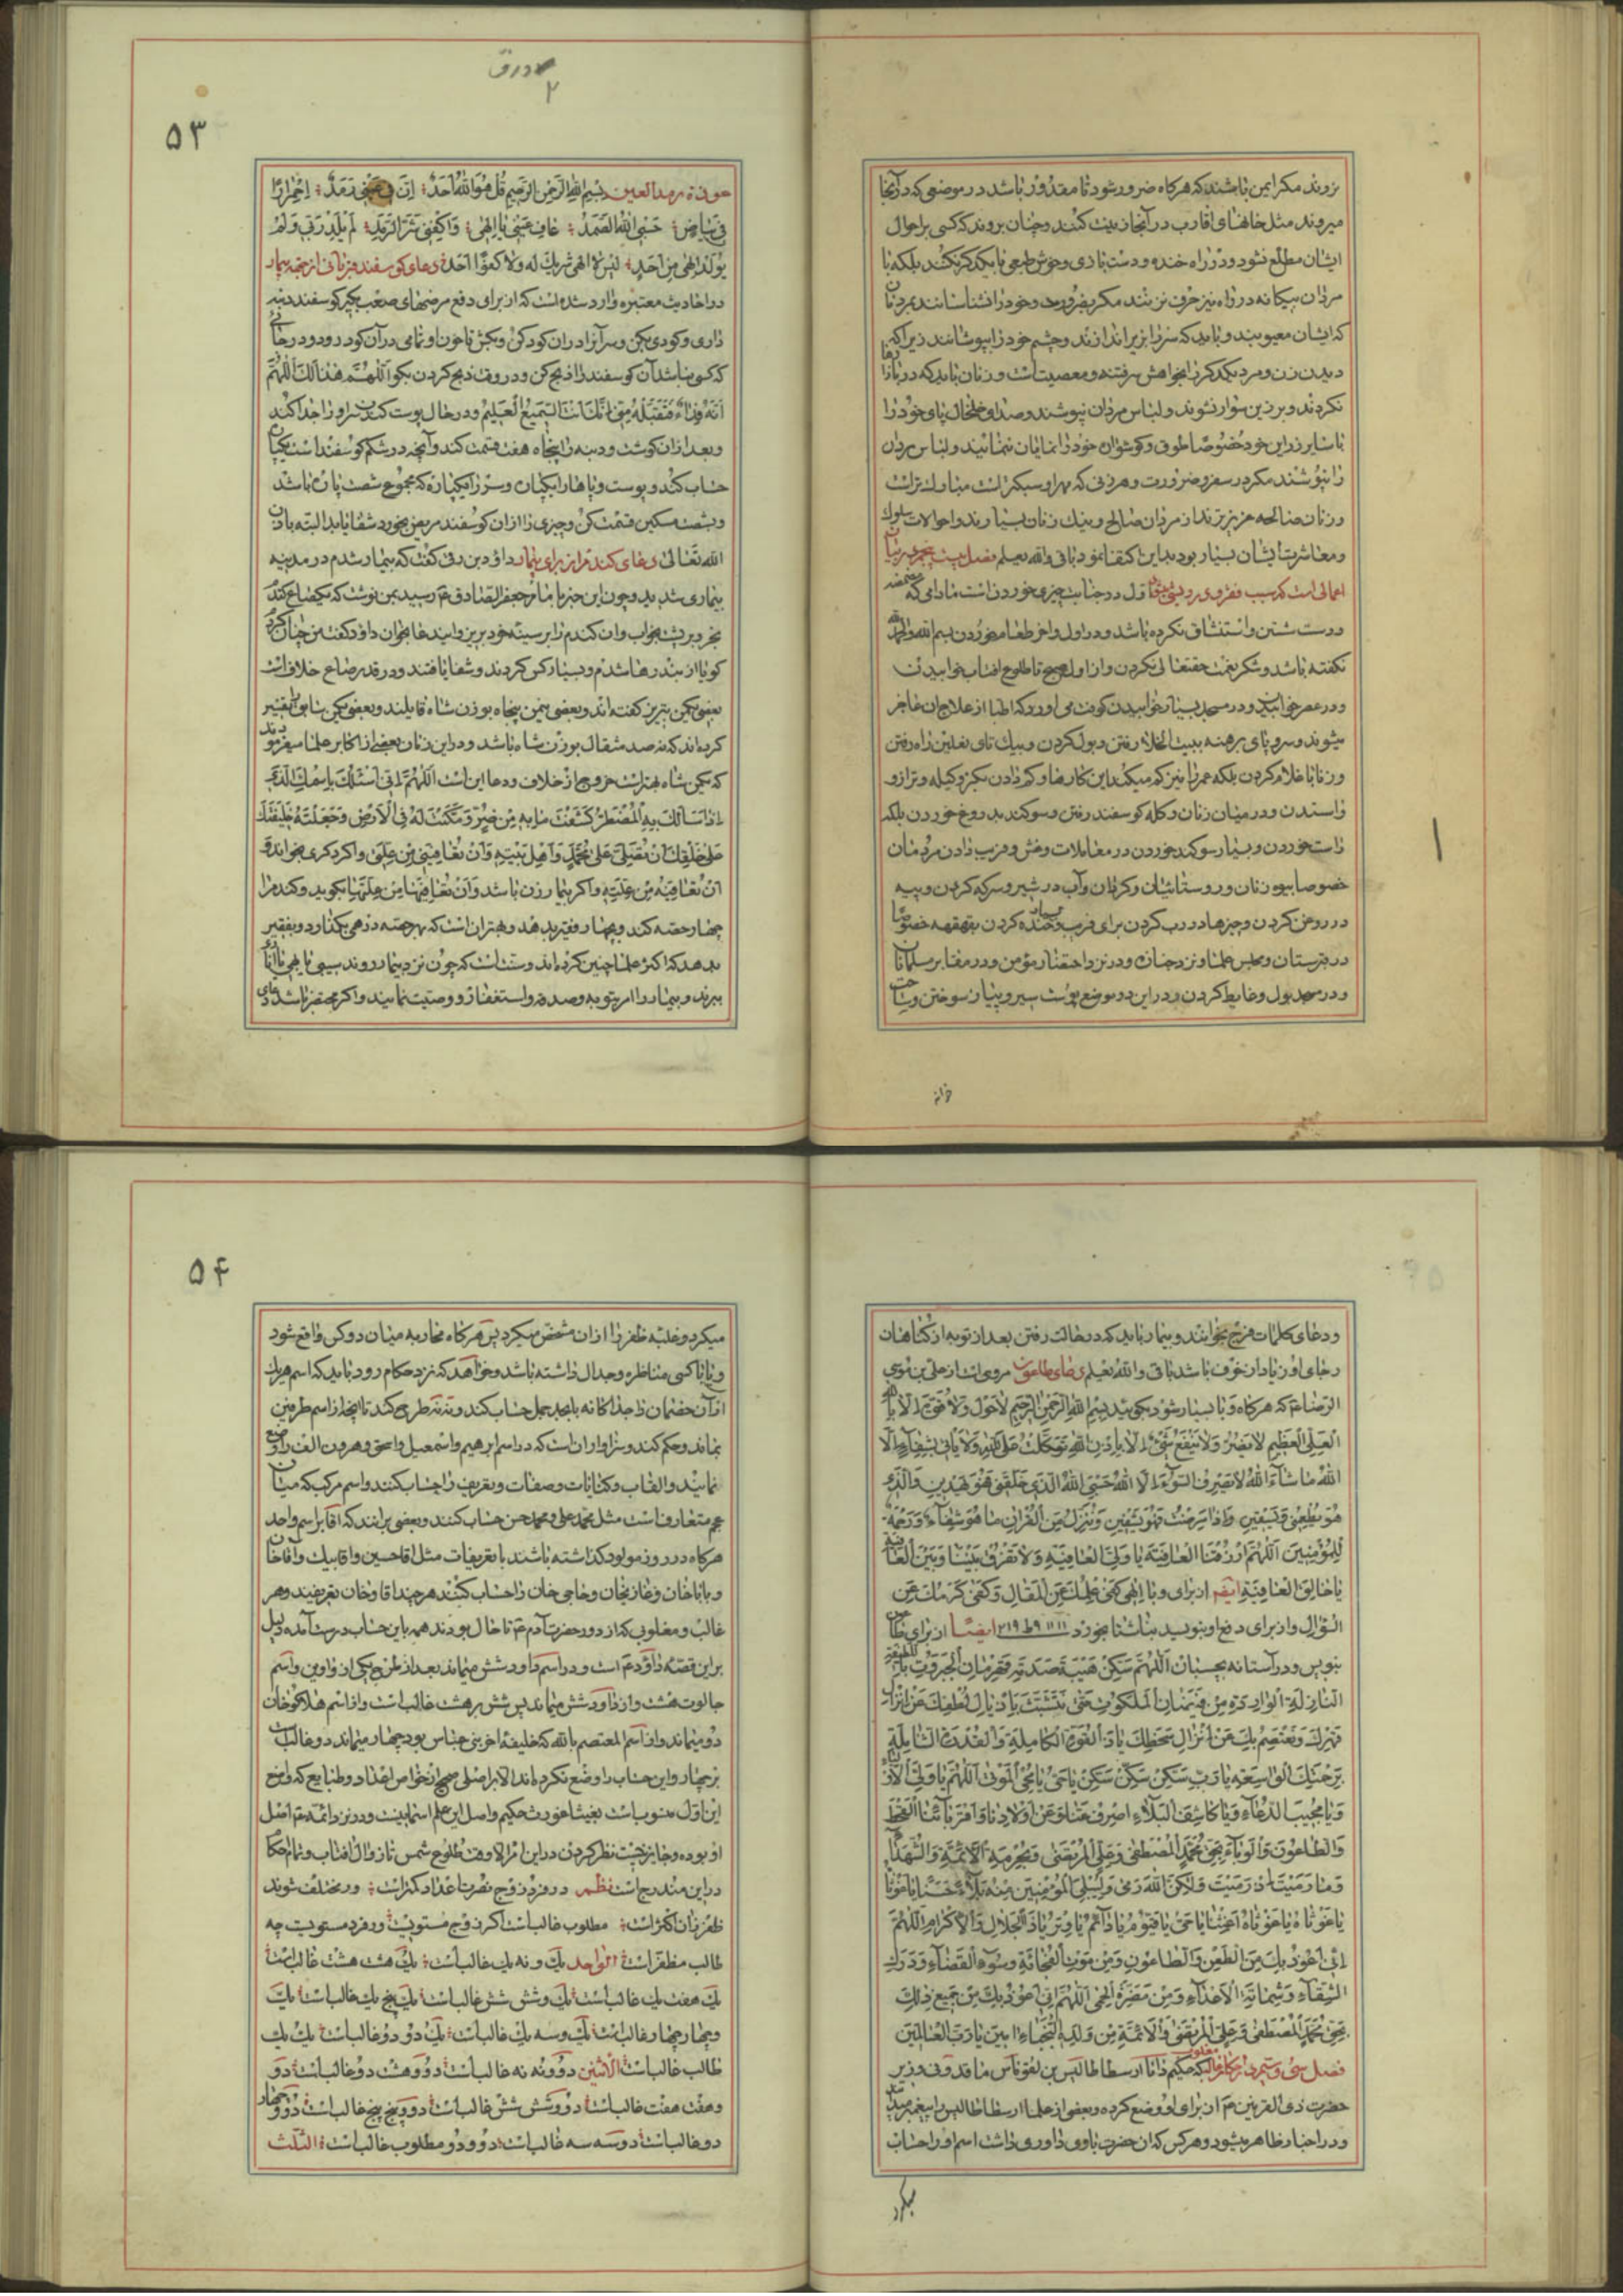 نروند مگر ایمن باشند که هرگاه ضرور شود تا مقدور باشد در موضعی که در آنجا
میروند مثل خانهای اقارب در آنجا زینت کنند و چنان بروند که کسی بر احوال
ایشان مطلع نشود و در راه خنده و دست بازی و خوش طبعی با یکدیگر نکنند بلکه با
مردان بیکانه در راه نیز حرف نزنند مگر بضرورت و خود را نشناسانند بمردان
که ایشان معیوبند و باید که سر را بزیر اندازند و چشم خود را بپوشانند زیرا که
دیدن زن و مرد یکدیگر را بخواهش فتنه و معصیت است و زنان باید که در بازارها
نگردند و بر زین سوار نشوند و لباس مردان نپوشند و صدای خلخال پای خود را
با سایر زراین خود خصوصا طوق و گوشواره خود را نمایان ننمایند و لباس مردان
را نپوشند مگر در سفر و ضرورت و هر زنی که مهر او سبکتر است مبارک تر است
و زنان صالحه عزیزترند از مردان صالح و نیک زنان بسیارند و احوالات سلوک
و معاشرت ایشان بسیار بود بدین اکتفا نمود باقی والله یعلم فصل بیست پنجم در بیان
اعمالی است که سبب فقر و درویشی اول در جنابت چیزی خوردن است مادامی که مضمضه
و دست شستن و استنشاق نکرده باشد و در اول و آخر طعام خوردن بسم الله و الحمدلله
نکفته باشد و شکر نعمت حقتعالی نکردن و از اول صبح تا طلوع افتاب خوابیدن
و در عصر خوابیدن و در مسجد بسیار خوابیدن کوفت می آورد که اطبا از علاج ان عاجز
میشوند و سر و پای برهنه ببیت الخلا رفتن و بول کردن و بیک تای نعلین راه رفتن
و زنا با غلام کردن بلکه عمر را نیز کم میکند این کارها و کم دادن بگز و کیله و ترازو
را ستدن و در میان زنان و کله کوسفند رفتن و سوگند بدروغ خوردن بلکه
راست خوردن و بسیار سوگند خوردن در معاملات و غش و فریب دادن مردمان
خصوصا بیوه زنان و روستائیان و کردان و آب در شیر و سرکه کردن و پیه
در روغن کردن و چیزها در رب کردن برای فریب و خنده کردن بقهقهه خصوصا
در قبرستان و مجلس علما و نزد جنازه و در نزد احتضار مؤمن و در مقابر مسلمانان
و در مسجد بول و غایط کردن و در این دو موضع پوست سیر و پیاز سوختن و ساحت
۲ ورق
۵۳
عوذة رمد العین بسم الله الرحمن الرحیم قل هو الله احد ان فی عینی رمد احمرارا
فی بیاض حسبی الله الصمد عاف عینی یا الهی واکفنی شر الرمد لم یلد ربی ولم
یولد الهی من احد لیس لاالهی شریک له ولا کفوا احد دعای کوسفند قربانی از جهة بیمار
در احادیث معتبره وارد شده است که از برای دفع مرضهای صعب بگیر کوسفند دنبه
داری و کودی بکن و سر آنرا در ان کود کن و بکش تا خون او تمامی در آن کود رود و در جائی
که کسی نباشد آن کوسفند را ذبح کن و در وقت ذبح کردن بگو اللهم هذا لک اللهم
انه فداء فتقبله منی انک انت السمیع العلیم و در حال پوست کندن سر او را جدا کند
و بعد از ان کوشت و دنبه را بپنجاه هفت قسمت کند و آنچه در شکم کوسفند است یکپاره
حساب کند و پوست و پاها را یکپاره و سر را یکپاره که مجموع شصت پاره باشد
و بشصت مسکین قسمت کن و چیزی را از ان کوسفند مریض بخورد شفا یابد البته باذن
الله تعالی دعای کندم از برای بیمار داؤد بن رقی کفت که بیمار شدم در مدینه
بیماری شدید و چون این خبر بامام جعفر الصادق ع رسید بمن نوشت که یکصاع کندم
بخر و بر پشت بخواب و ان کندم را بر سینه خود بریز و این دعا بخوان داؤد کفت من چنان کردم
کویا از بند رها شدم و بسیار کس کردند و شفا یافتند و در قدر صاع خلاف است
بعضی بیکمن تبریز کفته اند و بعضی بنیمن پنجاه بوزن شاه قایلند و بعضی بیکمن
کرده اند که نهصد مثقال بوزن شاه باشد و در این زمان بعضی از اکابر علما میفرمودند
که یکمن شاه بهتر است خروج از خلاف و دعا این است اللهم انی اسئلک باسمک الذی
اذا سالک به المضطر کشفت ما به من ضر و مکنت له فی الارض و جعلته خلیفتک
علی خلقک ان تصلی علی محمد و اهل بیته و ان تعافینی من علتی و اکر دکری بخواند و
ان تعافیه من علته و اکر بیمار زن باشد و ان تعافیها من علتها بکوید و کندم را
چهار حصه کند و بچهار فقیر بدهد و بهتر ان است که بهر حصه درهمی بکذارد و بفقیر
بدهد که اکثر علما چنین کرده اند و سنت است که چون نزد بیمار روند سیبی یا بهی یا اناری
ببرند و بیمار را امر بتوبه و صدقه و استغفار و وصیت نمایند و اکر محتضر باشد دعای
و دعای کلمات فرج بخوانند و بیمار باید که در حالت رفتن بعد از توبه از کناهان
رجای او زیاد از خوف باشد باقی والله یعلم دعای طاعون مروی است از علی بن موسی
الرضا ع که هرکاه وبا بسیار شود بگوئید بسم الله الرحمن الرحیم لا حول ولا قوة الا بالله
العلی العظیم لا یضر ولا ینفع شیء الا باذن الله توکلت علی الله ولا یاتی بشفاء الا
الله ما شاء الله لا یصرف السوء الا الله حسبی الله الذی خلقنی فهو یهدین والذی
هو یطعمنی و یسقین و اذا مرضت فهو یشفین و ننزل من القران ما هو شفاء و رحمة
للمؤمنین اللهم ارزقنا العافیة یا ولی العافیة ولا تفرق بیننا و بین العافیة
یا خالق العافیة ایضا از برای وبا الهی کفی علمک عن المقال و کفی کرمک عن
السؤال و از برای دفع او بنویسد بناشتا بخورد ایضا از برای طاعون
بنویس و در آستانه بچسبان اللهم سکن هیبة صدمة قهرمان الجبروت باللطیفة
النازلة الواردة من فیضان الملکوت حتی نتشبث باذیال لطفک عن انزال
قهرک و نعتصم بک عن انزال سخطک یا ذا القوة الکاملة والقدرة الشاملة
برحمتک الواسعة یا رب سکن سکن سکن یا حی یا محیی الموتی اللهم یا ولی الالاء
و یا مجیب الدعاء و یا کاشف البلاء اصرف عنا و عن اولادنا و اقربائنا القحط
والطاعون والوباء بحق محمد المصطفی و علی المرتضی و بحرمة الائمة والشهداء
و ما رمیت اذ رمیت ولکن الله رمی و لیبلی المؤمنین منه بلاء حسنا یا غوثاه
یا غوثاه یا غوثاه اغثنا یا حی یا قیوم یا دائم یا وتر یا ذا الجلال والاکرام اللهم
انی اعوذ بک من الطعن والطاعون و من موت الفجائة و سوء القضاء و درک
الشقاء و شماتة الاعداء و من مضرة الحمی اللهم انی اعوذ بک من جمیع ذلک
بحق محمد المصطفی و علی المرتضی والائمة من ولده النجباء امین یا رب العالمین
فصل سی و سیم در احکام غالب مغلوب که حکیم دانا ارسطاطالیس بن نقوماس وزیر
حضرت ذی القرنین ع از برای او وضع کرده و بعضی از علما ارسطاطالیس را پیغمبر میدانند
و در اخبار ظاهر میشود و هر کس که ان حضرت باوی داوری داشت اسم او را حساب
میکرد
۵۴
میکرد و غلبه ظفر را از ان مشخص میکرد پس هرکاه محاربه میان دو کس واقع شود
و یا با کسی مناظره و جدال داشته باشد و خواهد که نزد حکام رود باید که اسم هریک
از آن خصمان را جداکانه بابجد جمل حساب کند و نه نه طرح کند تا انچه از اسم طرفین
بماند و حکم کند و سزاوار ان است که در اسم ابرهیم و اسمعیل و اسحق و هرون الف را وضع
نمایند و القاب و کنایات و صفات و تعریف را حساب نکنند و اسم مرکب که میان
عجم متعارف است مثل محمد علی و محمد حسن حساب کنند و بعضی برانند که اقا بر اسم واحد
هرکاه در روز مولود کذاشته باشند با تعریفات مثل اقا حسین و اقا بیک و آقا خان
و بابا خان و غازیخان و حاجی خان را حساب کنند هرچند اقا و خان تعریفند و هر
غالب و مغلوبی که از دور حضرت آدم ع تا حال بودند همه باین حساب درست آمده دلیل
براین قصه داؤد ع است و در اسم داود شش میماند بعد از طرح یکی از واوین و اسم
جالوت هشت و از داود شش میماند پس شش بر هشت غالب است و از اسم هلاکو خان
دو میماند و از اسم المعتصم بالله که خلیفه آخر بنی عباس بود چهار میماند دو غالب
بر چهار و این حساب را وضع نکرده اند الا بر اصلی صحیح از خواص اعداد و طبایع که واضع
این اول منسوب است بفیثاغورث حکیم و اصل این علم اسمانیست و در نزد ائمه ع اصل
او بوده و جایز نیست نظر کردن در این امر الا وقت طلوع شمس تا زوال افتاب و تمام احکام
در این مندرجاست نظم در فرد و زوج نصرت اعداد کمتر است ور مختلف شوند
ظفر زان اکثر است مطلوب غالبست اگر زوج مستویست ور فرد مستویست چه
طالب مظفر است الواحد یک و نه یک غالب است یک هشت هشت غالب است
یک هفت یک غالب است یک و شش شش غالب است یک پنج یک غالب است یک
و چهار چهار غالب است یک و سه یک غالب است یک دو دو غالب است یک یک
طالب غالب است الاثنین دو و نه نه غالب است دو و هشت دو غالب است دو
و هفت هفت غالب است دو و شش شش غالب است دو و پنج پنج غالب است دو و چهار
دو غالب است دو سه سه غالب است دو و دو مطلوب غالب است الثلث